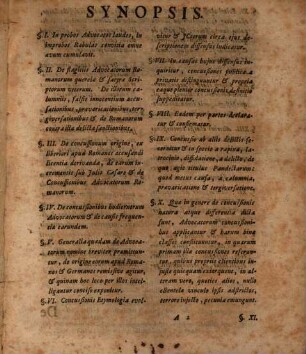 SYNOPSIS.
§. I. In probos Advocatos laudes, in
improbos Rabulas convitia omne
ævum cumulavit.
§. II. De flagitiis Advocatorum Romanorum
querela & satyra Scriptorum
veterum. De illorum calumniis,
falsis innocentium accusationibus,
prævaricationibus, tergiversationibus
& de Romanorum
contra illa delicta sanctionibus.
§. III. De concussionum origine, ac
liberiori apud Romanos accusandi
licentia derivanda, de earum incremento
sub Julio Cæsare & de
Concussionibus Advocatorum Romanorum.
§. IV. De concussionibus hodiernorum
Advocatorum & de causis frequentia
earundem.
§. V. Generalia quædam de Advocatorum
nomine breviter præmittuntur,
de origine eorum apud Romanos
& Germanos remissive agitur,
& quinam hoc loco per illos intelligantur
concise exponitur.
§. VI. Concussionis Etymologia
& JCtorum circa ejus
descriptionem dissensus indicatur.
§. VII. In causas hujus dissensus inquiritur,
concussiones publica à
privatis distinguuntur & propria
eaque plenior concussionis, definitio
suppeditatur.
§. VIII. Eadem per partes declaratur
& confirmatur.
§. IX. Concussio ab aliis delictis
& in specie à rapina, latrocinio,
à dolo; de
quo agit titulus Pandectarum
quod metus causa; à calumnia,
prævaricatione & tergiversatione.
§. X. Quo in genere de concussionis
natura atque differentia dilla
sunt, Advocatorum concussionibus
applicantur & harum binæ
classes constituuntur, in quarum
primam illæ concussiones referuntur,
quibus propriis clientibus injuste
quicquam extorquent, in alteram
vero, quoties alios, nullo
clientelæ vinculo ipsis adstrictos,
terrore injecto, pecunia emungunt.
A 2 §. XI.